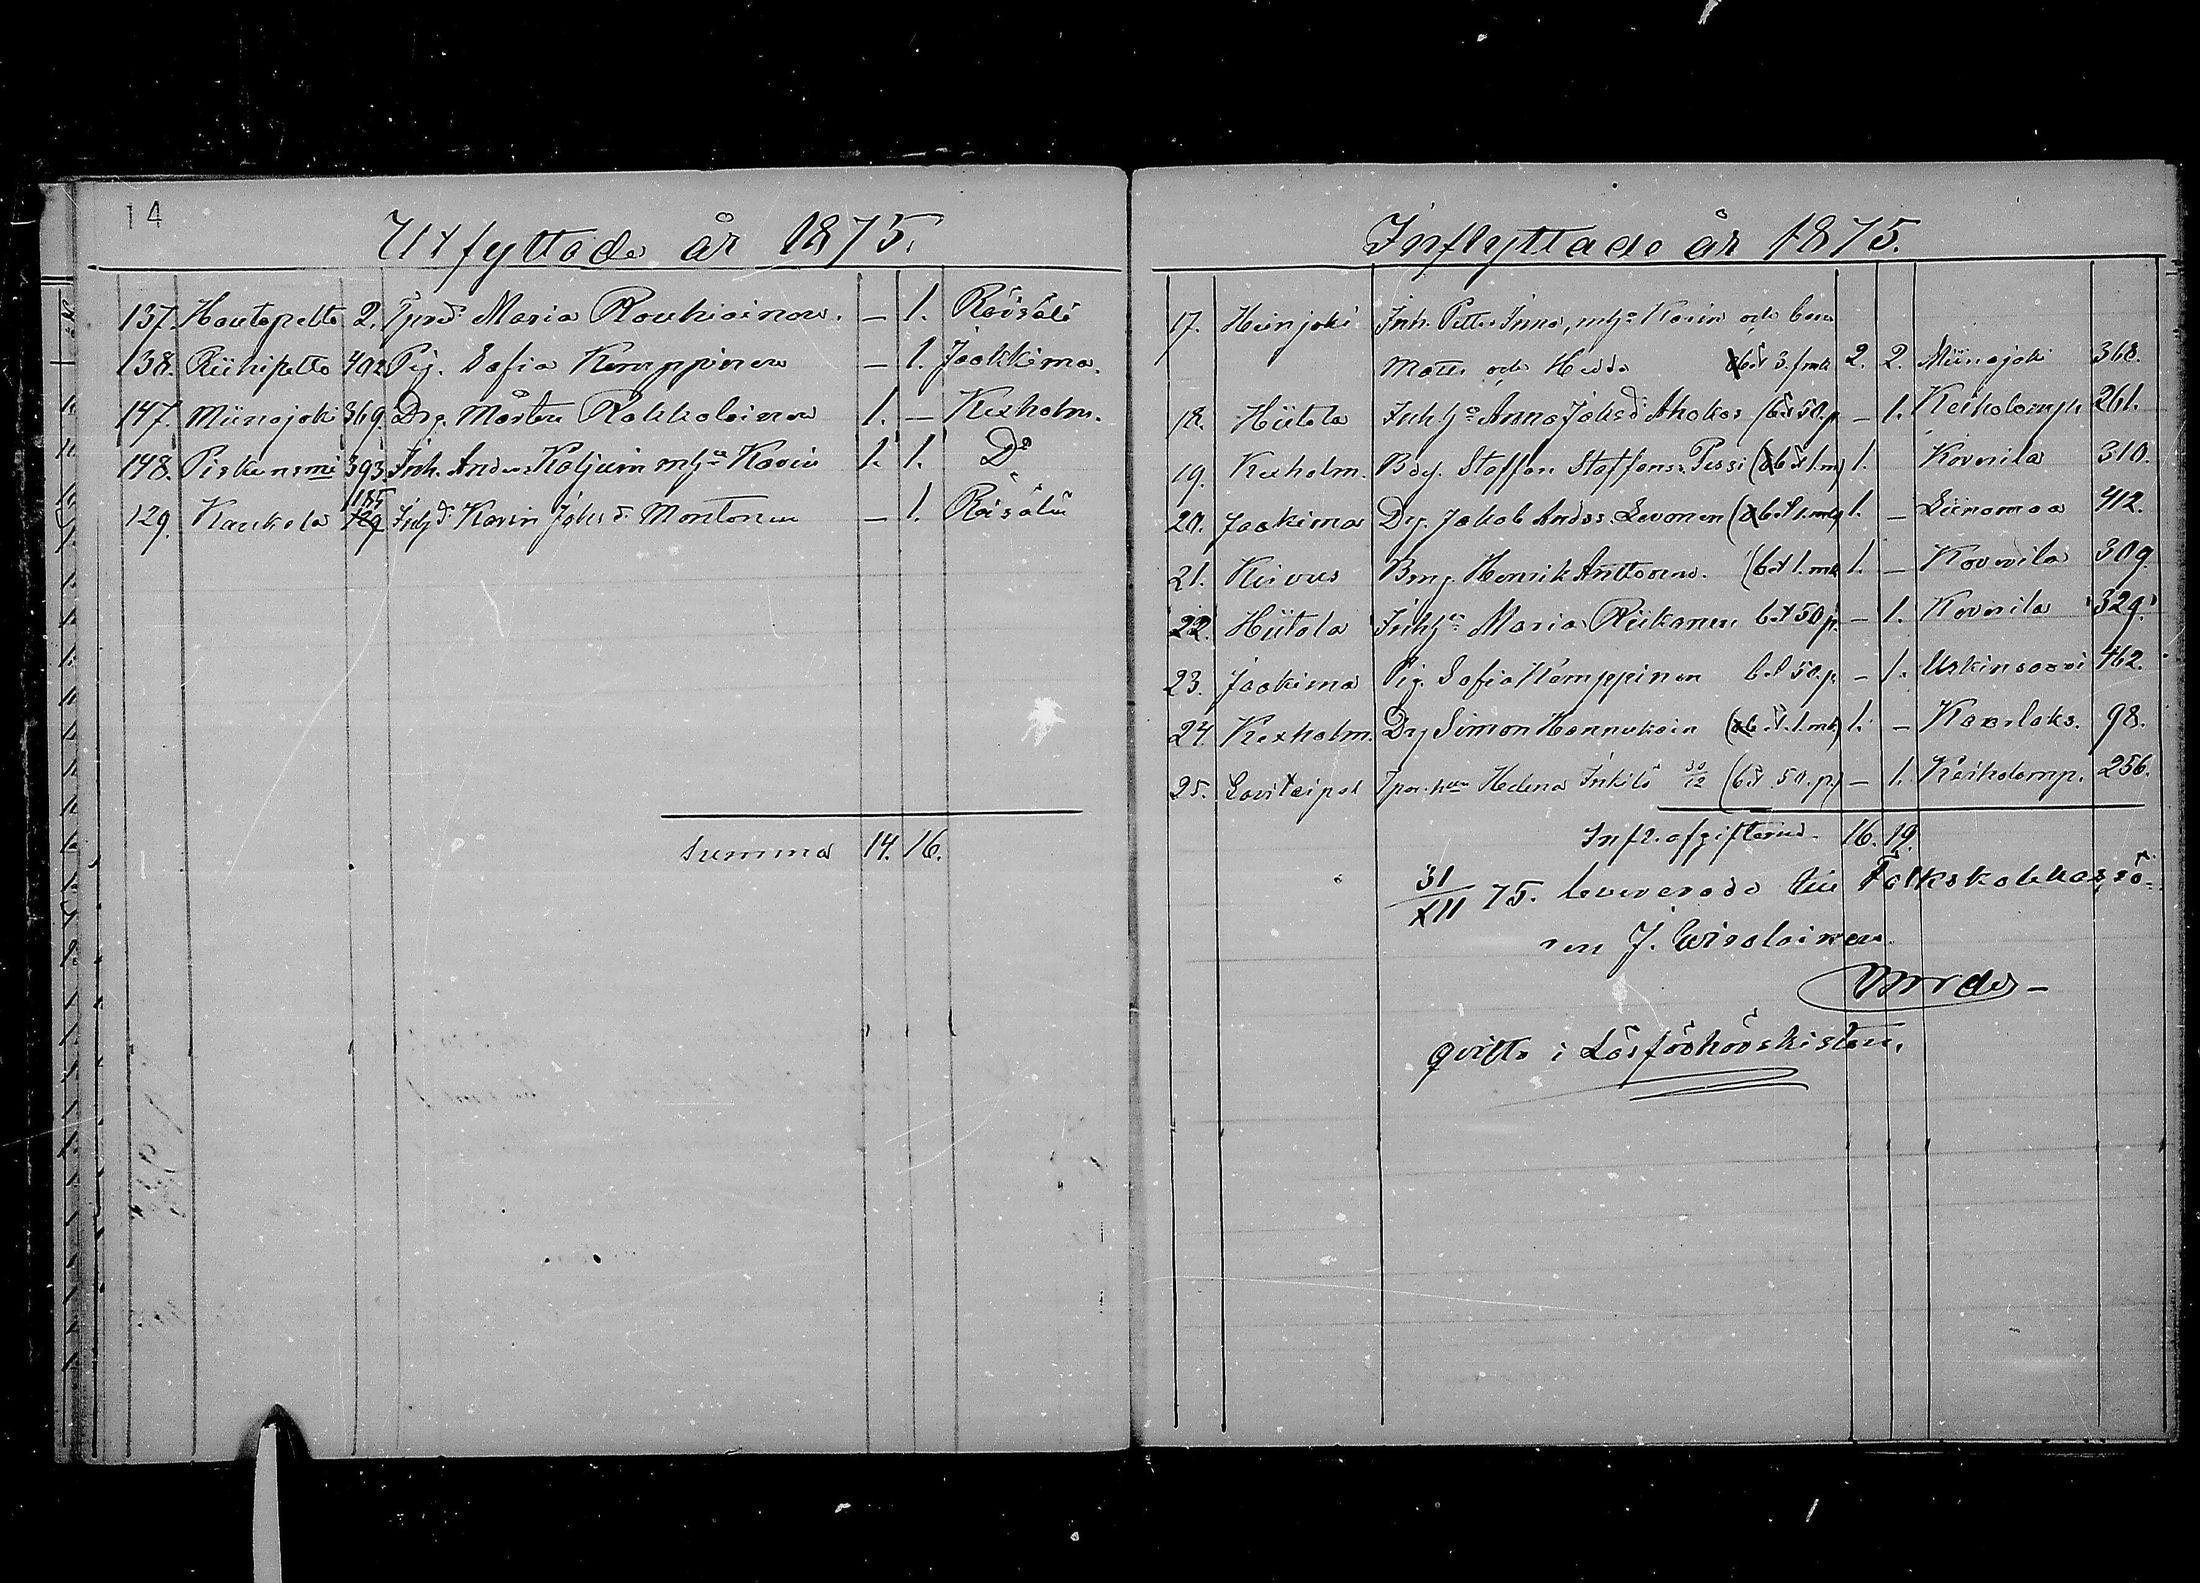 14
Utfyttade år 1875.
137. Hautapelto 2. Tprd Maria Roukiainen. — 1. Räisälä
138. Riihipelto 402 Pig. Sofia Kemppinen — 1. Jaakkima.
147. Miinajoki 369. Drg. Mårten Rokkolainen 1. — Kexholm.
148. 393. Inh. Anders Koljuin mhja Karin 1. 1. Do
129. Kaukola 185 129 Inhjd. Karin Johsd. Montonen — 1. Räisälä
Summa 14. 16.
Inflyttade år 1875.
17. Heinjoki Inh. Petter Inna, mhja Karin och barn
Matts och Hedda bet 3. fmk 2. 2. Miinajoki 368.
18. Hiitola Inhja Anna Johsd Ahokas (bet 50. p — 1. Keiholamp. 261.
19. Kexholm. Bdg. Staffan Staffanss. Pessi (bet 1. m) 1. Kovrila 310.
20. Jaakima Drg. Jakob Anders. Levonen (bet 1. mk) 1. — Liinamaa 412.
21. Kirvus Bmg. Henrik Anttonen. (bet 1. mk 1. — Kovrila 309.
22. Hiitola Inhja Maria Riikonen bet 50 p. — 1. Kovrila 329.
23. Jaakima Pig. Sofia Kemppinen bet 50. p. — 1. Uskinsaari 462.
24. Kexholm. Drg Simon Hannukain (bet. 1. mk) 1. — Kaarlaks. 98.
25. Savitaipal Tpor. hun Helena Inkilä 30/12 (bet. 50. p.) — 1. Keiholamp. 256.
Infl. afgifterna. 16. 19.
31/XII 75. levererade till Folkskolekassö-
ren J.
qvitto i Läsförhörskistan.